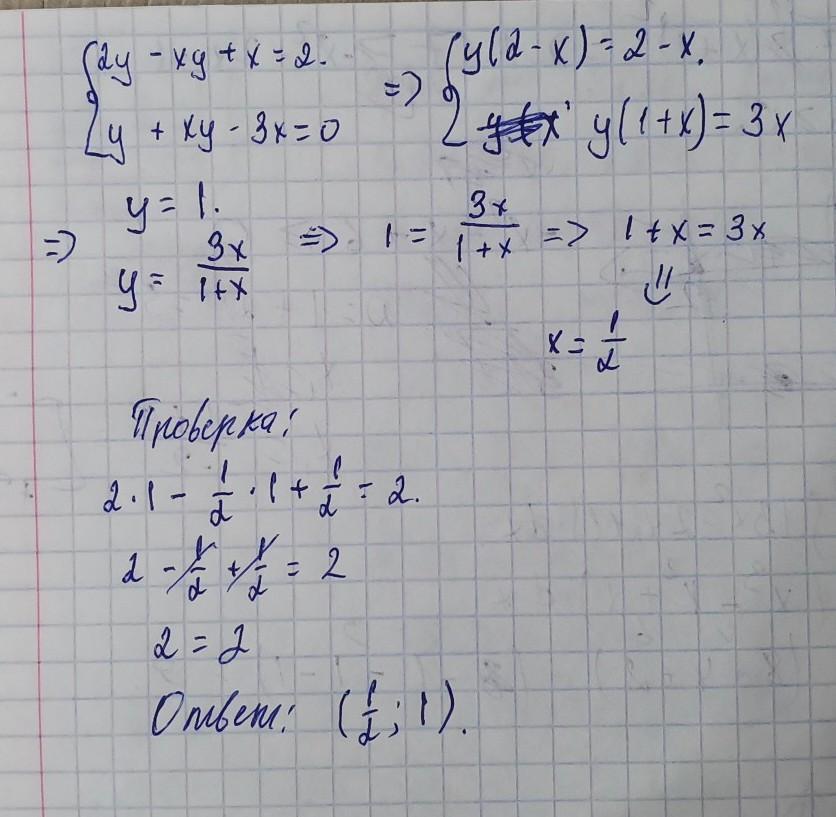 {2y - xy + x = 2. => {y(2 - x) = 2 - x.
{y + xy - 3x = 0 {y(1 + x) = 3x
y = 1.
=> y = 3x/(1+x) => 1 = 3x/(1+x) => 1 + x = 3x
⇓
x = 1/2
Проверка:
2 · 1 - 1/2 · 1 + 1/2 = 2.
2 - 1/2 + 1/2 = 2
2 = 2
Ответ: (1/2; 1).